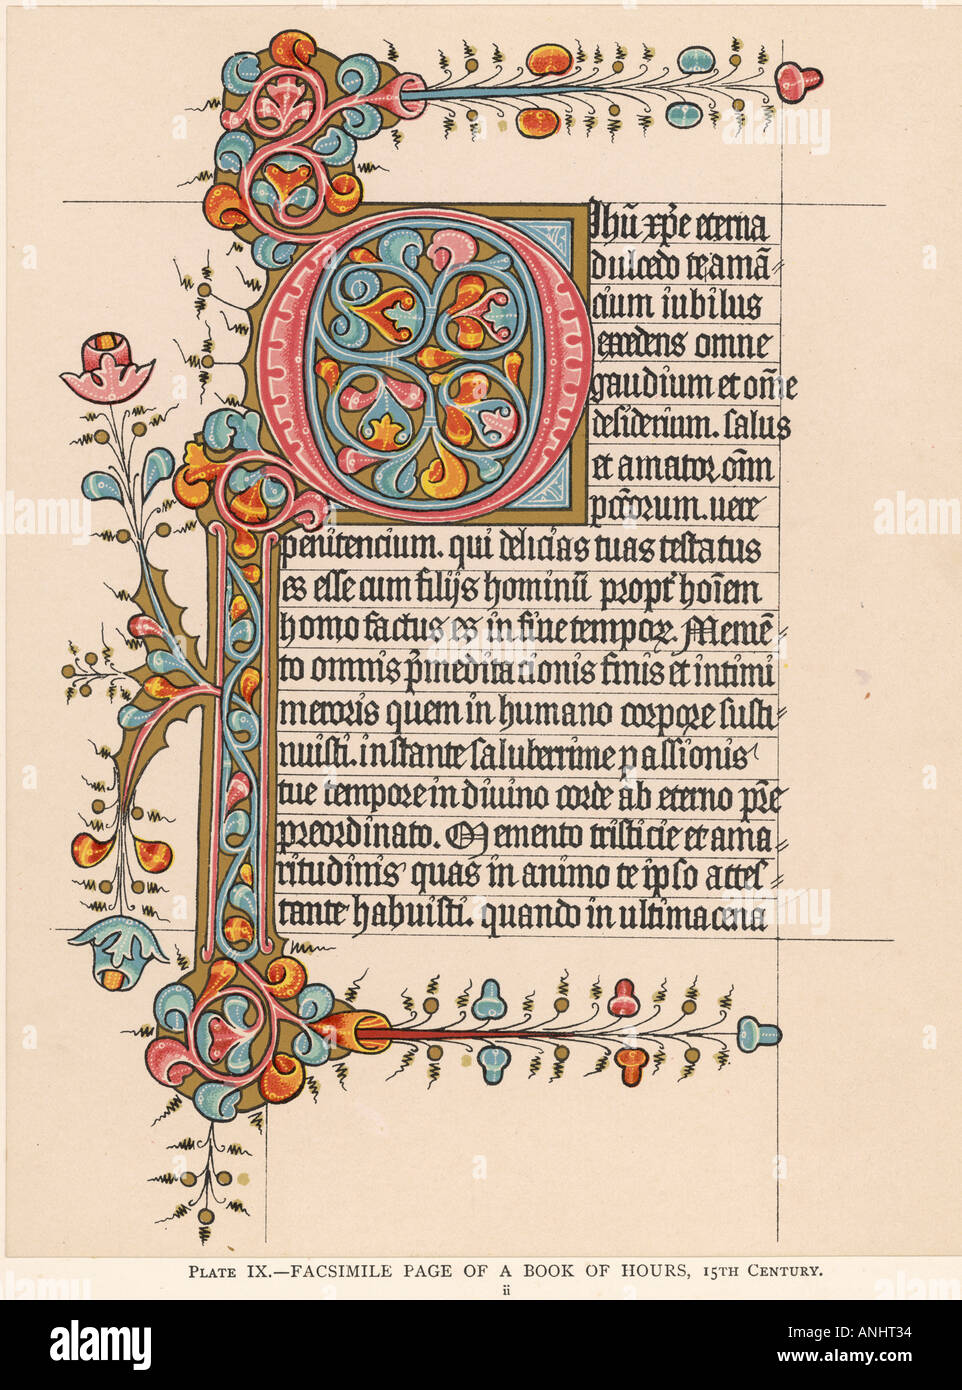 O Jhū xp̄e eterna
dulcedo te amā
cium iubilus
excedens omne
gaudium et om̄e
desiderium. salus
et amator om̄n
pctōrum. uere
penitencium. qui delicias tuas testatus
es esse cum filijs hominū propt' hoīem
homo factus es in fine tempoꝝ. Memē
to omnis p̄meditacionis finis et intimi
meroris quem in humano corpore susti
nuisti. instante saluberrime passionis
tue tempore in diuino corde ab eterno p̄re
preordinato. Memento tristicie et ama
ritudinis quas in animo te ipso attes
tante habuisti. quando in ultima cena
PLATE IX.—FACSIMILE PAGE OF A BOOK OF HOURS, 15TH CENTURY.
ii
alamy
Image ID: ANHT34
www.alamy.com